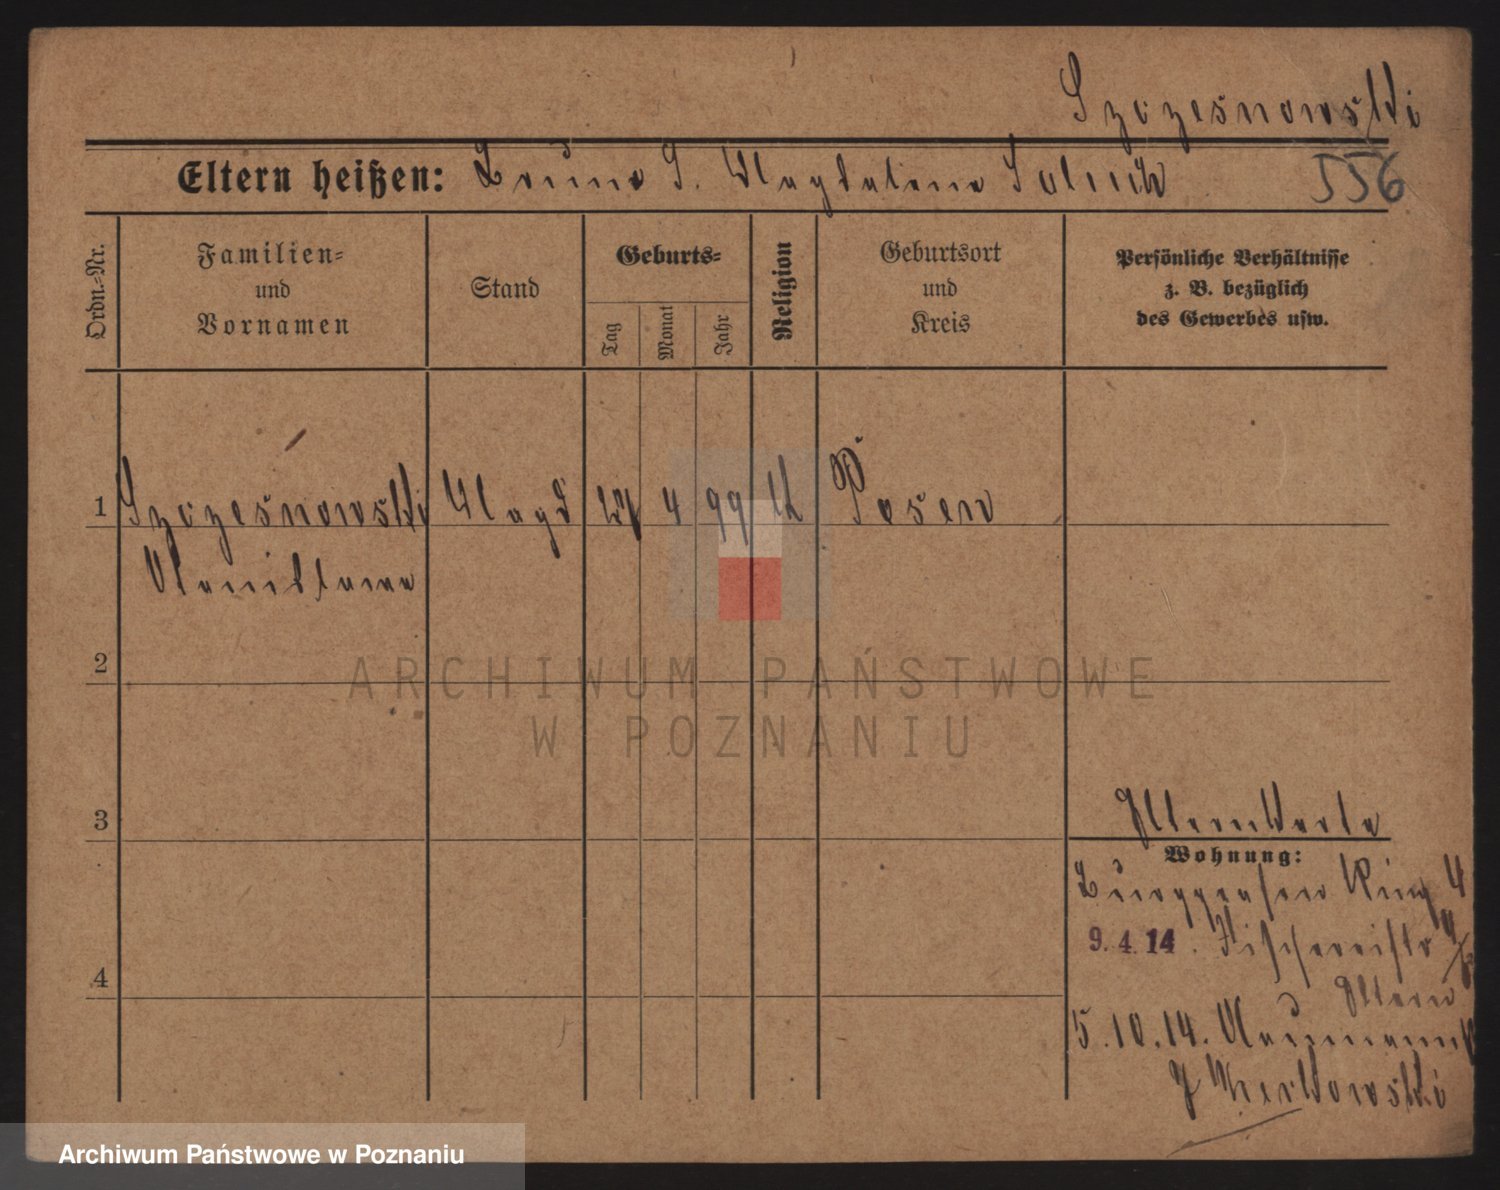 Szczesnowski
Eltern heißen: Bruno S. Magdalena
556
Ordn.-Nr.
Familien-
und
Vornamen
Stand
Geburts-
Tag
Monat
Jahr
Religion
Geburtsort
und
Kreis
Persönliche Verhältnisse
z. B. bezüglich
des Gewerbes usw.
1 Szczesnowski Magd 4 99 Posen
Stanislawa
2
3
4
Elternkarte
Wohnung:
Ring 4
9.4.14. Fischereistr
Eltern
5.10.14.
ARCHIWUM PAŃSTWOWE
W POZNANIU
Archiwum Państwowe w Poznaniu